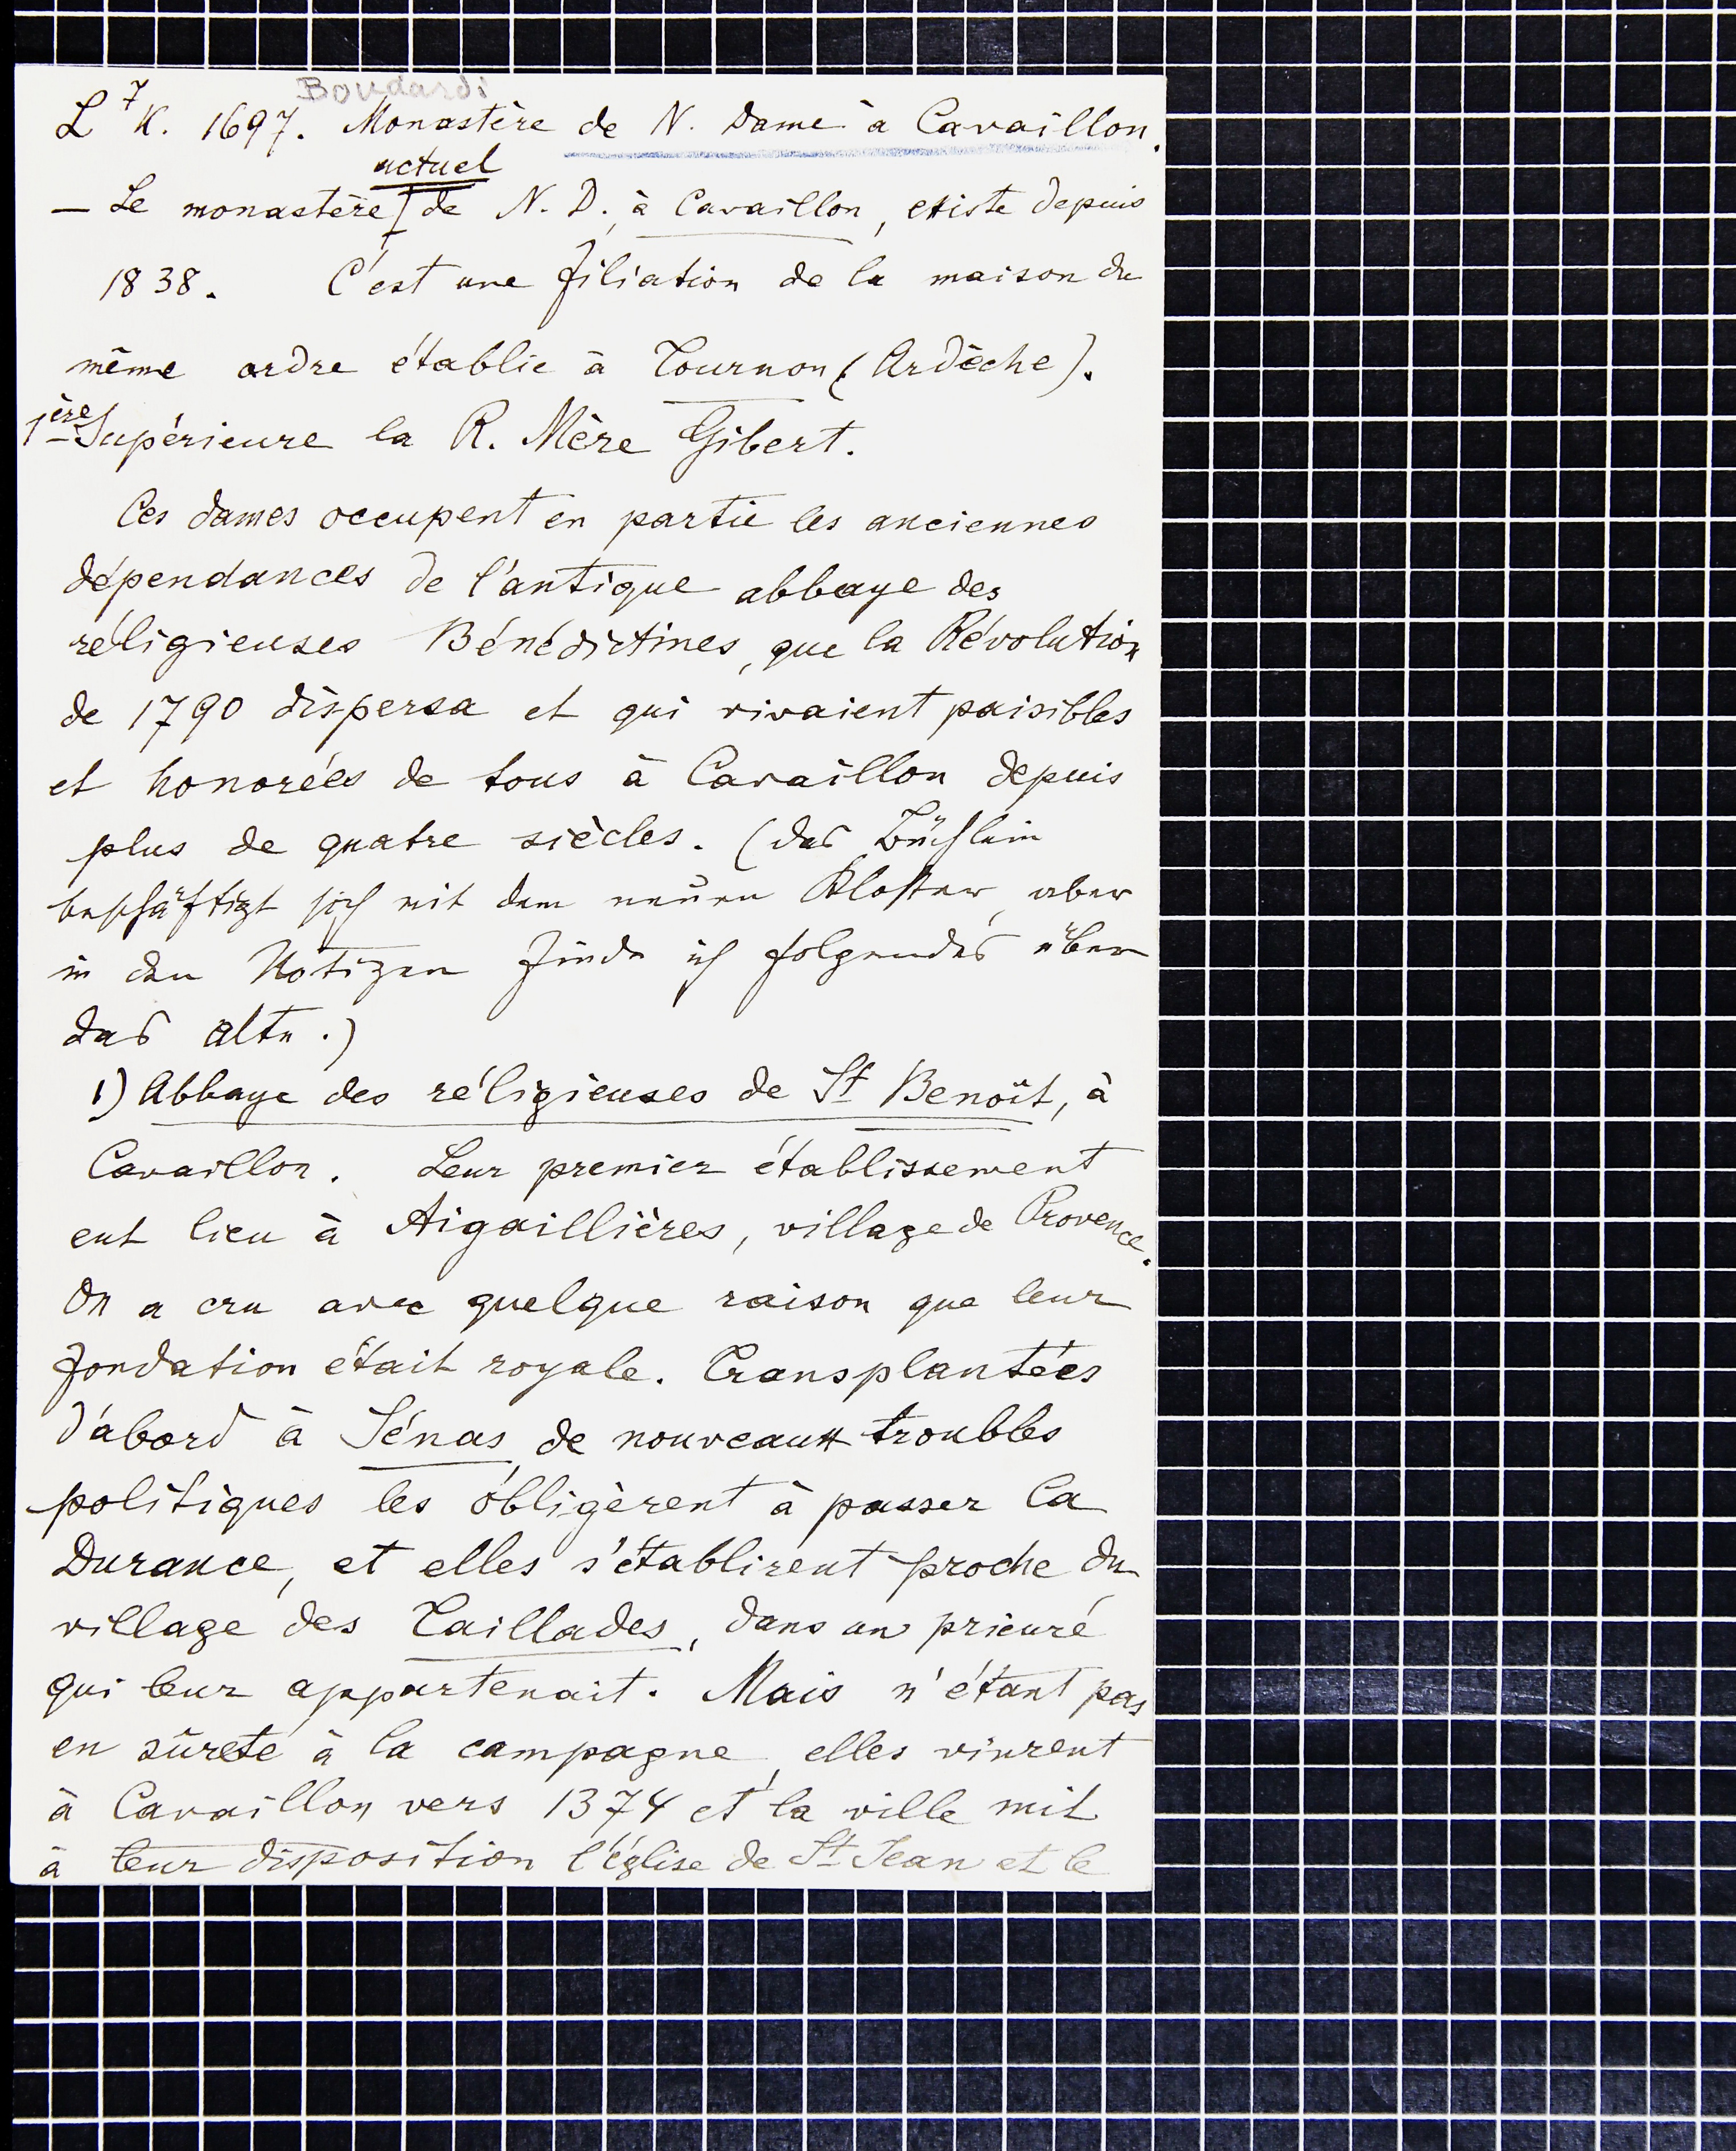 Boudardi
L⁷K. 1697. Monastère de N. Dame à Cavaillon.
actuel
— Le monastère de N. D., à Cavaillon, existe depuis
1838. C'est une filiation de la maison du
même ordre établie à Tournon (Ardèche).
1ère Supérieure la R. Mère Gibert.
Ces dames occupent en partie les anciennes
dépendances de l'antique abbaye des
réligieuses Bénédictines, que la Révolution
de 1790 dispersa et qui vivaient paisibles
et honorées de tous à Cavaillon depuis
plus de quatre siècles. (das Büchlein
beschäftigt sich mit dem neuen Kloster, aber
in den Notizen finde ich folgendes über
das alte.)
1) Abbaye des réligieuses de St Benoît, à
Cavaillon. Leur premier établissement
eut lieu à Aigaillières, village de Provence.
On a cru avec quelque raison que leur
fondation était royale. Transplantées
d'abord à Sénas, de nouveaux troubles
politiques les obligèrent à passer la
Durance, et elles s'établirent proche du
village des Taillades, dans un prieuré
qui leur appartenait. Mais n'étant pas
en sûreté à la campagne, elles vinrent
à Cavaillon vers 1374 et la ville mit
à leur disposition l'église de St Jean et le